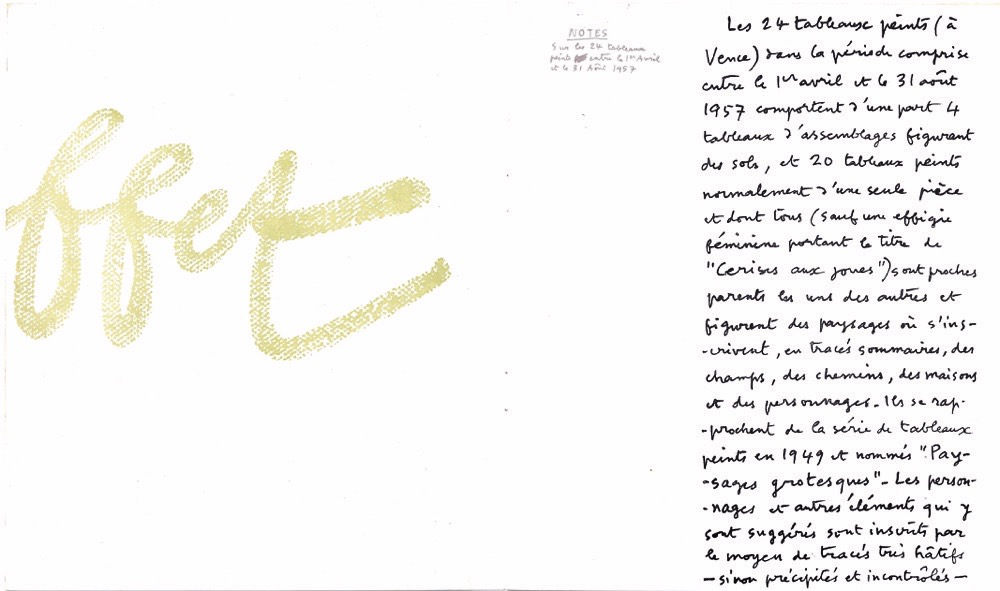 ffet
NOTES
Sur les 24 tableaux
peints entre le 1er Avril
et le 31 Août 1957
Les 24 tableaux peints (à
Vence) dans la période comprise
entre le 1er avril et le 31 août
1957 comportent d'une part 4
tableaux d'assemblages figurant
des sols, et 20 tableaux peints
normalement d'une seule pièce
et dont tous (sauf une effigie
féminine portant le titre de
"Cerises aux joues") sont proches
parents les uns des autres et
figurent des paysages où s'ins-
-crivent, en tracés sommaires, des
champs, des chemins, des maisons
et des personnages. Ils se rap-
-prochent de la série de tableaux
peints en 1949 et nommés "Pay-
-sages grotesques". Les person-
-nages et autres éléments qui y
sont suggérés sont inscrits par
le moyen de tracés très hâtifs
— sinon précipités et incontrôlés —